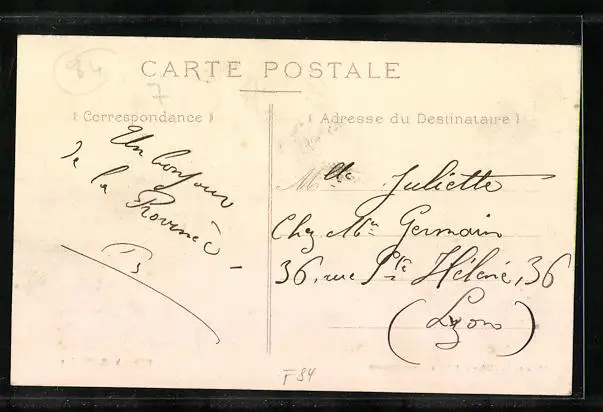 84
CARTE POSTALE
7
Correspondance
Adresse du Destinataire
Un bonjour
de la
Province
Mlle Juliette
Chez Mr Germain
36, rue Ste Hélène, 36
(Lyon)
F84